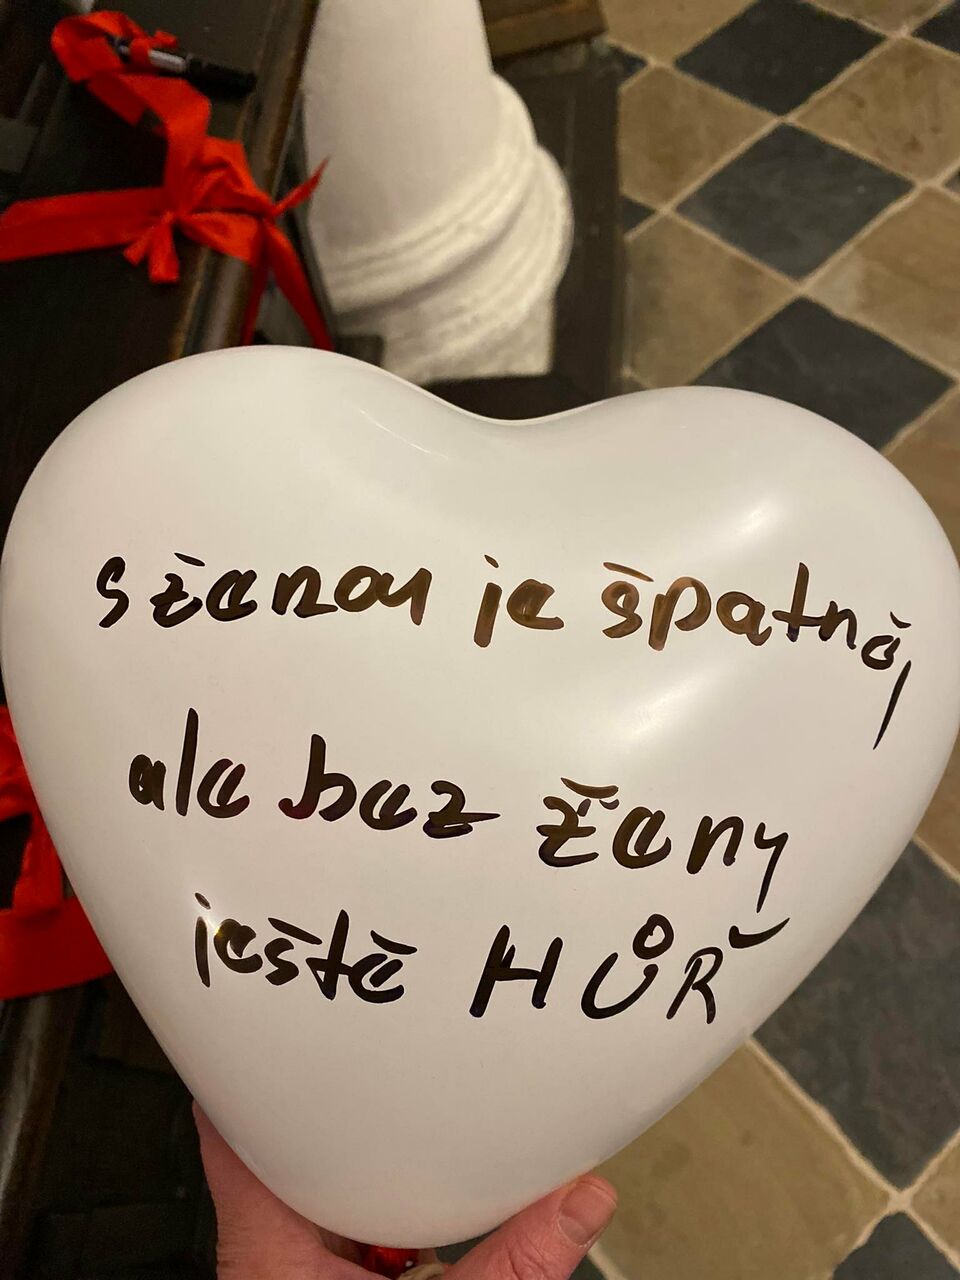 s ženou je špatně,
ale bez ženy
ještě HŮŘ